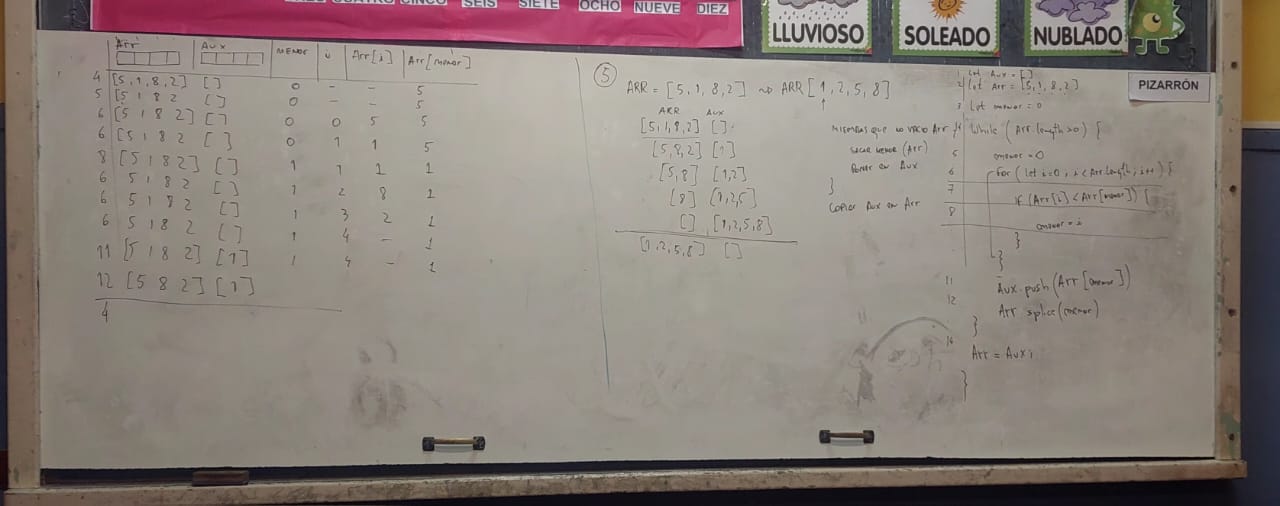 CUATRO CINCO SEIS SIETE OCHO NUEVE DIEZ
LLUVIOSO
SOLEADO
NUBLADO
PIZARRÓN
Arr Aux MENOR i Arr[i] Arr[menor]
4 [5,1,8,2] [] 0 - - 5
5 [5 1 8 2 [] 0 - - 5
6 [5 1 8 2] [] 0 0 5 5
6 [5 1 8 2 [] 0 1 1 5
8 [5 1 8 2] [] 1 1 1 1
6 5 1 8 2 [] 1 2 8 1
6 5 1 8 2 [] 1 3 2 1
6 5 1 8 2 [] 1 4 - 1
11 [5 1 8 2] [1] 1 4 - 1
12 [5 8 2] [1]
4
5
ARR = [5,1,8,2] ⇝ ARR[1,2,5,8]
ARR AUX
[5,1,8,2] []
[5,8,2] [1]
[5,8] [1,2]
[8] [1,2,5]
[] [1,2,5,8]
[1,2,5,8] []
MIENTRAS QUE NO VACIO Arr {
SACAR MENOR (Arr)
PONER EN AUX
}
COPIAR AUX EN Arr
1 Let Aux = []
2 Let Arr = [5,1,8,2]
3 Let menor = 0
4 While (Arr.length>0) {
5 menor = 0
6 For (Let i=0, i<Arr.length; i++) {
7 if (Arr[i] < Arr[menor]) {
8 menor = i
}
}
11 Aux.push(Arr[menor])
12 Arr splice(menor)
}
14 Arr = Aux;
}